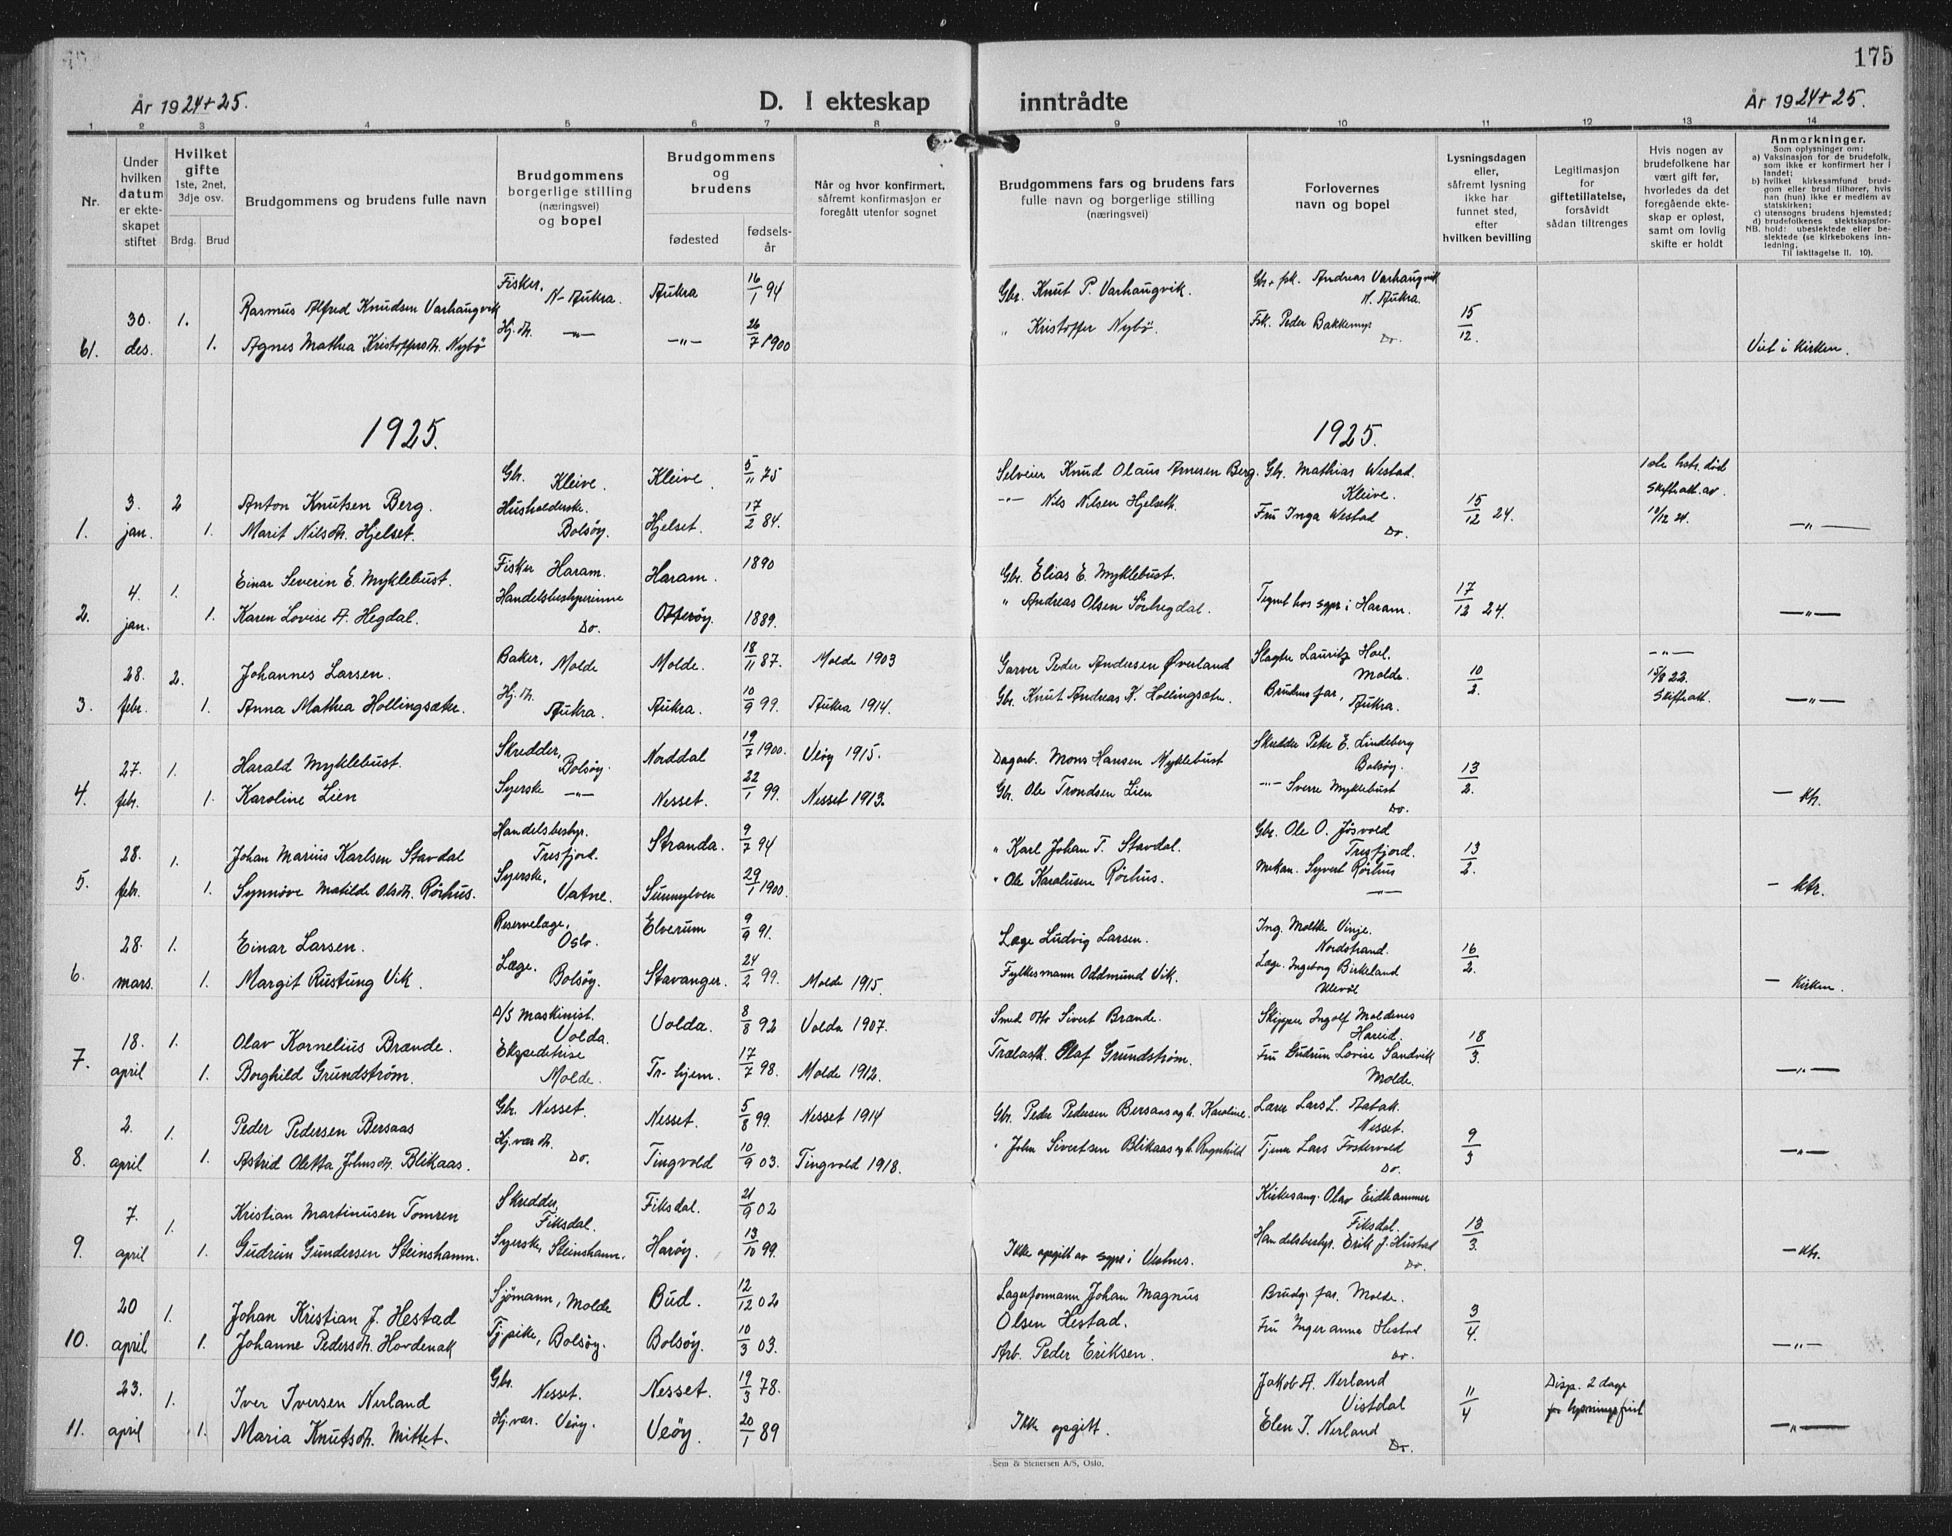 175
År 1924+25.
D. I ekteskap inntrådte
År 1924+25.
1 2 3 4 5 6 7 8 9 10 11 12 13 14
Nr.
Under hvilken datum er ekteskapet stiftet
Hvilket gifte 1ste, 2net, 3dje osv.
Brdg. Brud
Brudgommens og brudens fulle navn
Brudgommens borgerlige stilling (næringsvei) og bopel
Brudgommens og brudens
fødested
fødselsår
Når og hvor konfirmert, såfremt konfirmasjon er foregått utenfor sognet
Brudgommens fars og brudens fars fulle navn og borgerlige stilling (næringsvei)
Forlovernes navn og bopel
Lysningsdagen eller, såfremt lysning ikke har funnet sted, efter hvilken bevilling
Legitimasjon for giftetillatelse, forsåvidt sådan tiltrenges
Hvis nogen av brudefolkene har vært gift før, hvorledes da det foregående ekteskap er opløst, samt om lovlig skifte er holdt
Anmerkninger.
Som oplysninger om:
a) Vaksinasjon for de brudefolk, som ikke er konfirmert her i landet;
b) hvilket kirkesamfund brudgom eller brud tilhører, hvis han (hun) ikke er medlem av statskirken;
c) utensogns brudens hjemsted;
d) brudefolkenes slektskapsforhold: ubeslektede eller beslektede (se kirkebokens innledning,
NB.
Til iakttagelse II. 10).
61. 30. des. 1. Rasmus Alfred Knudsen Varhaugvik Fisker, N-Aukra. Aukra 16/1 94 Gbr. Knut P. Varhaugvik. Gbr + fsk. Andreas Varhaugvik N. Aukra 15/12.
1. Agnes Mathea Kristoffersdt. Nybö Hj. dt. —"— —"— 26/7 1900 " Kristoffer Nybö. Fsk. Peder Bakkemyr Do. Viet i kirken.
1925. 1925.
1. 3. jan. 2 Anton Knutsen Berg. Gbr. Kleive. Kleive. 5/11 75 Selveier Knud Olaus Arnesen Berg. Gbr. Mathias Westad Kleive. 15/12 24. Skifteatt. av 10/12 24.
1. Marit Nilsdt. Hjelset. Husholderske. Bolsöy. Hjelset. 17/2 84. —"— Nils Nilsen Hjelseth. Fru Inga Westad Do. —"—
2. 4. jan. 1. Einar Severin E. Myklebust. Fisker Haram. Haram. 1890 Gbr. Elias E. Myklebust. Tegnet hos sgpr i Haram. 17/12 24
1. Karen Lovise A. Hegdal. Handelsbestyrerinne Do. Otteröy. 1889. " Andreas Olsen Sörhegdal. —"—
3. 28. febr. 2. Johannes Larsen. Baker, Molde Molde. 18/11 87. Molde 1903 Garver Peder Andersen Øverland Slagter Lauritz Hoel. Molde. 10/2. —"— 15/8 22. Skifteatt.
1. Anna Mathea Hollingsæter. Hj. dt. Aukra. Aukra. 10/9 99. Aukra 1914. Gbr. Knut Andreas K. Hollingsæter. Brudens far, Aukra. —"—
4. 27. febr. 1. Harald Myklebust. Skredder, Bolsöy. Norddal 19/7 1900. Veöy 1915. Dagarb. Mons Hansen Myklebust Skredder Peter E. Lindeberg Bolsöy. 13/2.
1. Karoline Lien Syerske —"— Nesset. 22/1 99. Nesset 1913. Gbr. Ole Trondsen Lien —"— Sverre Myklebust Do. — ktr.
5. 28. febr. 1. Johan Marius Karlsen Stavdal Handelsbestyr. Tresfjord. Stranda. 9/7 94 " Karl Johan T. Stavdal. Gbr. Ole O. Jösvold Tresfjord. 13/2.
1. Synnöve Matilde Olsdt. Rörhus. Syerske, Vatne. Sunnylven 29/1 1900. " Ole Karolusen Rörhus. Mekan. Syvert Rörhus —"— — ktr.
6. 28. mars. 1. Einar Larsen. Reservelæge, Oslo. Elverum 9/9 91. Læge Ludvig Larsen. Ing. Moltke Vinje. Nordstrand. 16/2.
1. Margit Rustung Vik. Læge. Bolsöy. Stavanger. 24/2 99. Molde 1915. Fylkesmann Oddmund Vik. Læge. Ingeborg Birkeland Ullevål — kirken.
7. 18. april 1. Olav Kornelius Brænde. D/S maskinist. Volda. Volda. 8/8 92 Volda 1907. Smed Otto Sivert Brænde. Skipper Ingolf Moldenes Hareid. 18/3.
1. Borghild Grundström. Ekspeditrise Molde. Tr-hjem. 17/7 98. Molde 1912. Trælastk. Olaf Grundström. Fru Gudrun Lovise Sandvik Molde. —"—
8. 2. april 1. Peder Pedersen Bersaas Gbr. Nesset. Nesset. 5/8 99. Nesset 1914 Gbr. Peder Pedersen Bersaas og h. Karoline. Lærer Lars L. Aatak. Nesset. 9/3
1. Astrid Oletta Johnsdt. Blikaas. Hj.vær. dt. Do. Tingvold 10/9 03. Tingvold 1918. " John Sivertsen Blikaas og h. Ragnhild Tjener Lars Fostervold Do. —"—
9. 7. april 1. Kristian Martinusen Tomren Skredder, Fiksdal. Fiksdal. 21/9 02 Kirkesang. Olav Eidhammer Fiksdal. 13/3.
1. Gudrun Gundersen Steinshamn. Syerske, Steinshamn. Haröy. 13/10 99. Ikke opgitt av sgpr i Vestnes. Handelsbestyr. Erik J. Hustad Do. — ktr.
10. 20 april 1. Johan Kristian J. Hestad Sjömann, Molde Bud. 12/12 02 Lagerformann Johan Magnus Olsen Hestad. Brudg. far. Molde. 3/4.
1. Johanne Pedersdt. Hovdenak Tj.pike, Bolsöy. Bolsöy. 10/3 03. Arb. Peder Eriksen. Fru Inger anna Hestad Do. —"—
11. 23. april 1. Iver Iversen Nerland Gbr. Nesset. Nesset. 19/3 78. Jakob A. Nerland Vistdal 11/4 Disp. 2 dage for lysningsfrist
1. Maria Knutsdt. Mittet. Hj.vær. Veöy. Veöy. 20/1 89 Ikke opgitt. Elen I. Nerland Do. —"—
Sem & Stenersen A/S, Oslo.